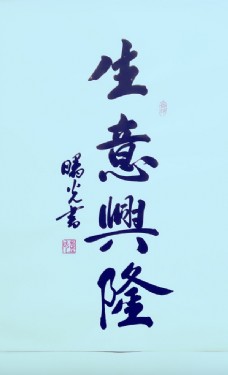 生意興隆
曙光書